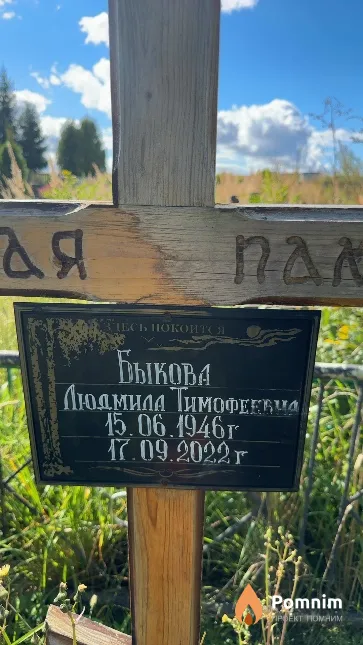 ая пам
ЗДЕСЬ ПОКОИТСЯ
БЫКОВА
ЛЮДМИЛА ТИМОФЕЕВНА
15.06.1946г
17.09.2022г
Pomnim
ПРОЕКТ ПОМНИМ